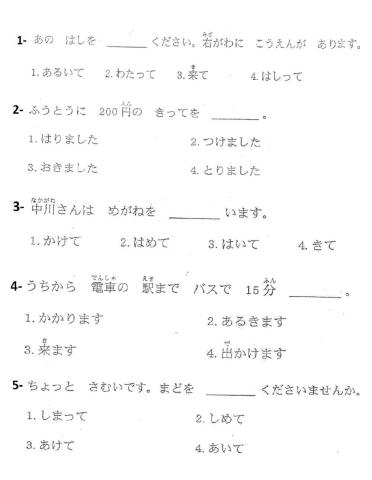 1- あの はしを ______ ください。右がわに こうえんが あります。
1.あるいて 2.わたって 3.来て 4.はしって
2- ふうとうに 200円の きってを ______。
1.はりました 2.つけました
3.おきました 4.とりました
3- 中川さんは めがねを ______ います。
1.かけて 2.はめて 3.はいて 4.きて
4- うちから 電車の 駅まで バスで 15分 ______。
1.かかります 2.あるきます
3.来ます 4.出かけます
5- ちょっと さむいです。まどを ______ くださいませんか。
1.しまって 2.しめて
3.あけて 4.あいて